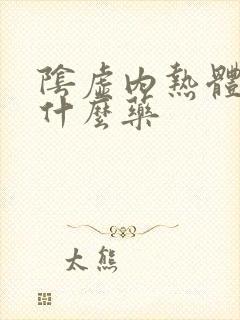 陰虛內熱體
什麼藥
太熊